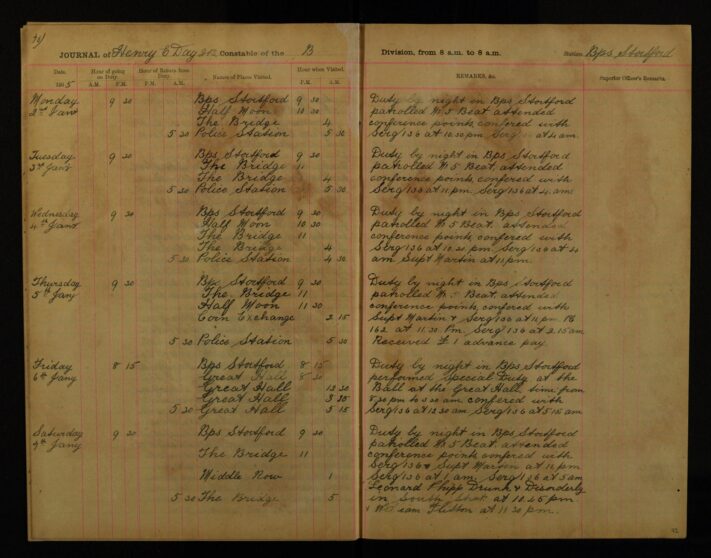 JOURNAL of Henry E Day 202 Constable of the B
Date.
1905
Hour of going on Duty.
A.M. P.M.
Hour of Return from Duty.
P.M. A.M.
Names of Places Visited.
Hour when Visited.
P.M. A.M.
Monday 9 30 Bps Stortford 9 30
2nd Jany Half Moon 10 30
The Bridge 4
5 30 Police Station 5 30
Tuesday 9 30 Bps Stortford 9 30
3rd Jany The Bridge 11
The Bridge 4
5 30 Police Station 5 30
Wednesday 9 30 Bps Stortford 9 30
4th Jany Half Moon 10 30
The Bridge 11
The Bridge 4
5 30 Police Station 4 30
Thursday 9 30 Bps Stortford 9 30
5th Jany The Bridge 11
Half Moon 11 30
Corn Exchange 2 15
5 30 Police Station 5 30
Friday 8 15 Bps Stortford 8 15
6th Jany Great Hall 8 30
Great Hall 12 30
Great Hall
5 30 Great Hall 5 15
Saturday 9 30 Bps Stortford 9 30
7th Jany
The Bridge 11
Middle Row 1
5 30 The Bridge 5
Division, from 8 a.m. to 8 a.m. Station Bps Stortford
REMARKS, &c. Superior Officer's Remarks.
Duty by night in Bps Stortford
patrolled No 5 Beat attended
conference points confered with
Serg 136 at 10.30 pm Serg at 4 am
Duty by night in Bps Stortford
patrolled No 5 Beat, attended
conference points, confered with
Serg 136 at 11 pm, Serg 136 at 4 am
Duty by night in Bps Stortford
patrolled No 5 Beat, attended
conference points, confered with
Serg 136 at 10.30 pm, Serg 136 at 4
am Supt Martin at 11 pm.
Duty by night in Bps Stortford
patrolled No 5 Beat, attended
conference points, confered with
Supt Martin & Serg 136 at 11 pm PC
162 at 11.30 Pm. Serg 136 at 2.15 am
Received £1 advance pay.
Duty by night in Bps Stortford
performed Special Duty at the
Ball at the Great Hall time from
8.30 pm to 5.30 am confered with
Serg 136 at 12.30 am, Serg 136 at 5.15 am
Duty by night in Bps Stortford
patrolled No 5 Beat, attended
conference points confered with
Serg 136 & Supt Martin at 11 pm
Serg 136 at 1 am, Serg 136 at 5 am
Leonard Phipp Drunk & Disorderly
in South Street at 10.25 pm
& William Flitton at 11.30 pm.